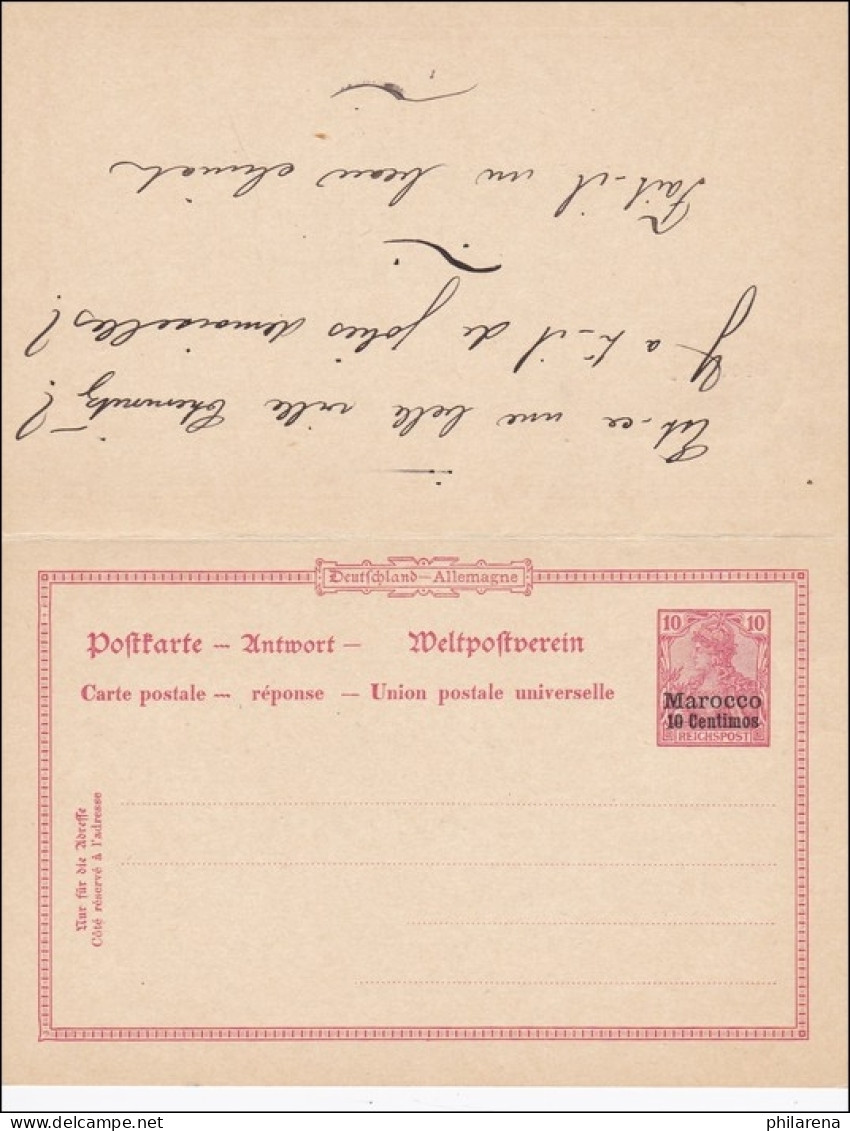 Est-ce une belle ville Chemnitz?
Y a t-il de jolies demoiselles?
Fait-il un beau climat
Deutschland—Allemagne
Postkarte — Antwort — Weltpostverein
Carte postale — réponse — Union postale universelle
10 10
Marocco
10 Centimos
REICHSPOST
Nur für die Adresse
Côté réservé à l'adresse
philarena